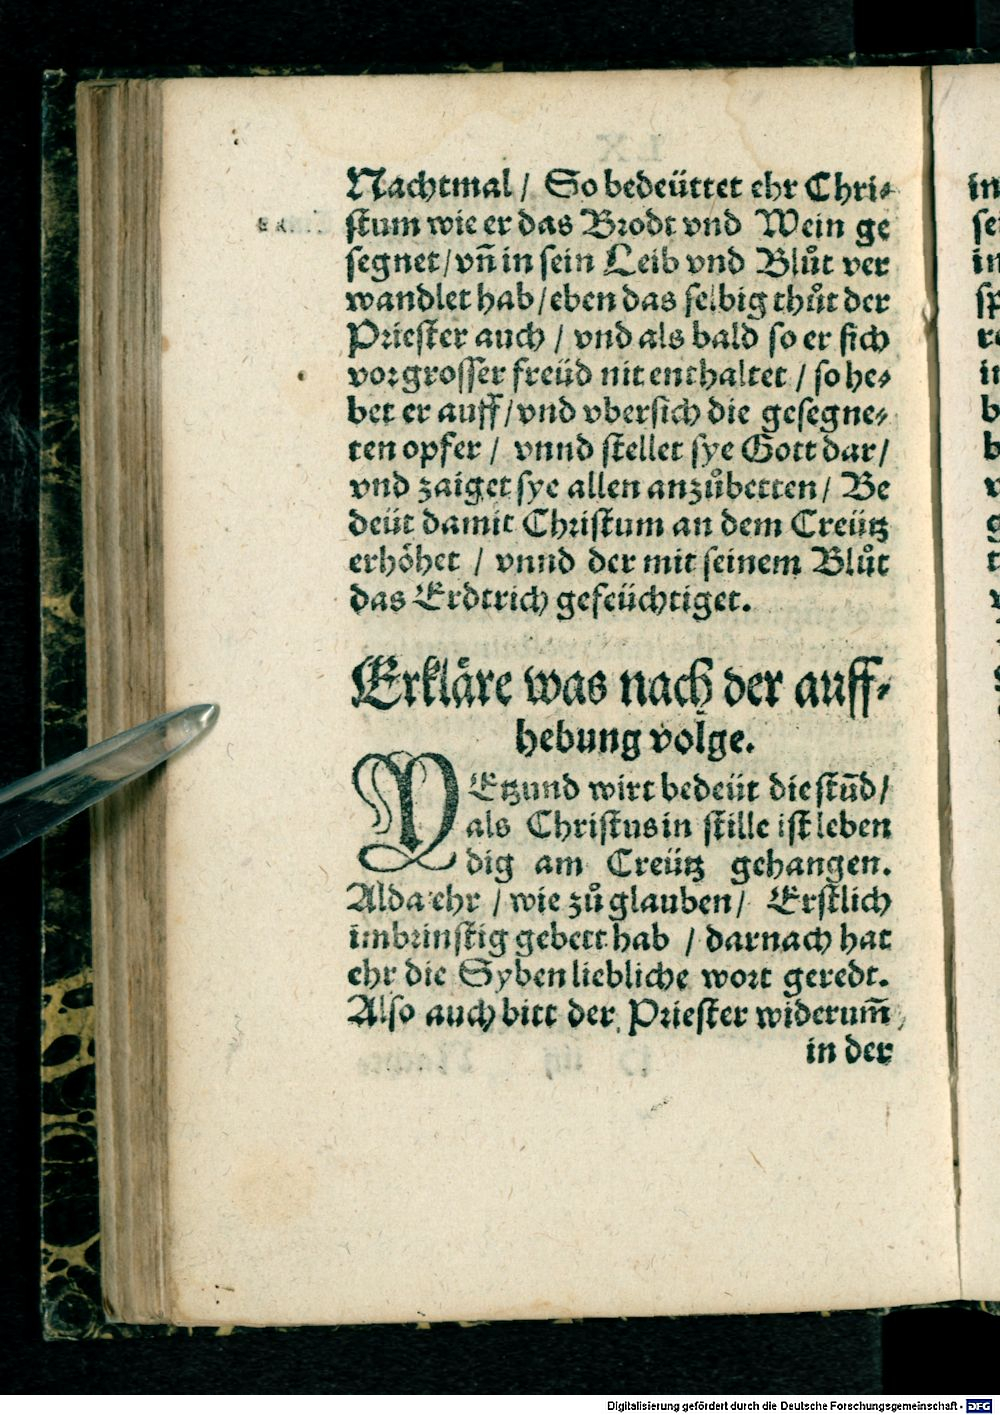 Nachtmal / So bedeüttet ehr Chri⸗
stum wie er das Brodt vnd Wein ge
segnet / vñ in sein Leib vnd Blůt ver
wandlet hab / eben das selbig thůt der
Priester auch / vnd als bald so er sich
vor grosser freüd nit enthaltet / so he⸗
bet er auff / vnd vbersich die gesegne⸗
ten opfer / vnnd stellet sye Gott dar /
vnd zaiget sye allen anzůbetten / Be
deüt damit Christum an dem Creütz
erhöhet / vnnd der mit seinem Blůt
das Erdtrich gefeüchtiget.
Erkläre was nach der auff⸗
hebung volge.
YEtzund wirt bedeüt die stūd /
als Christus in stille ist leben
dig am Creütz gehangen.
Alda ehr / wie zů glauben / Erstlich
imbrinstig gebett hab / darnach hat
ehr die Syben liebliche wort geredt.
Also auch bitt der Priester widerum̄
in der
Digitalisierung gefördert durch die Deutsche Forschungsgemeinschaft - DFG